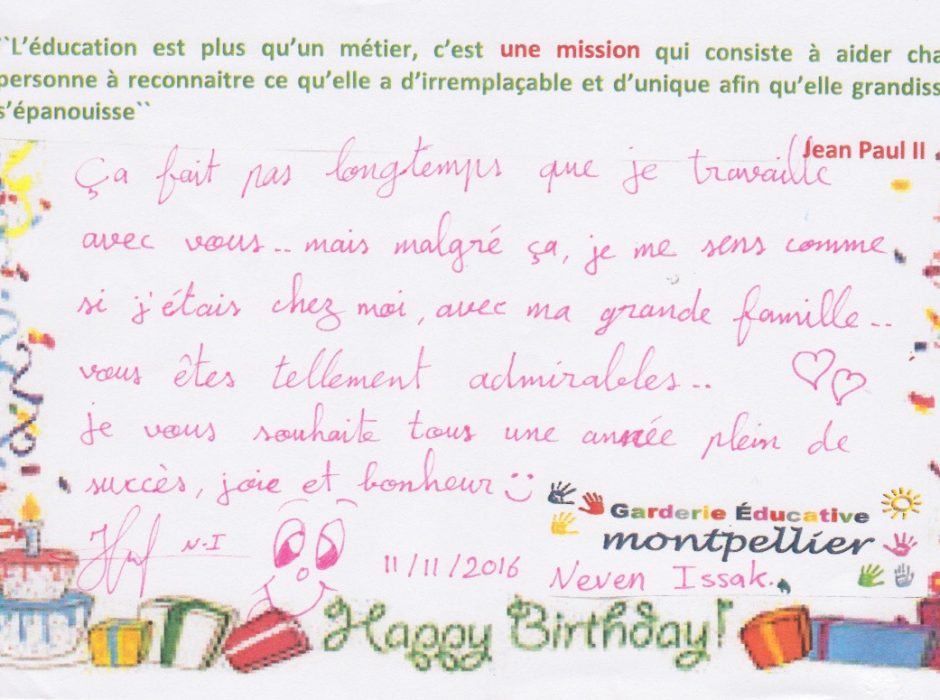 ``L'éducation est plus qu'un métier, c'est une mission qui consiste à aider cha
personne à reconnaitre ce qu'elle a d'irremplaçable et d'unique afin qu'elle grandiss
s'épanouisse``
Jean Paul II
Ça fait pas longtemps que je travaille
avec vous.. mais malgré ça, je me sens comme
si j'étais chez moi, avec ma grande famille..
vous êtes tellement admirables..
je vous souhaite tous une année plein de
succès, joie et bonheur
Garderie Éducative
montpellier
N-I
11/11/2016
Neven Issak.
Happy Birthday!